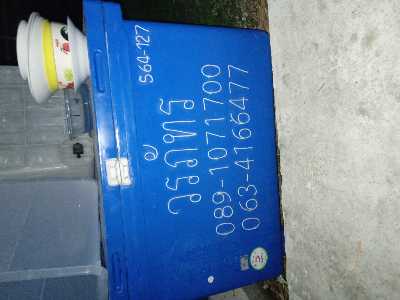 S64-127
วรภัทร
089-1071700
063-4166477